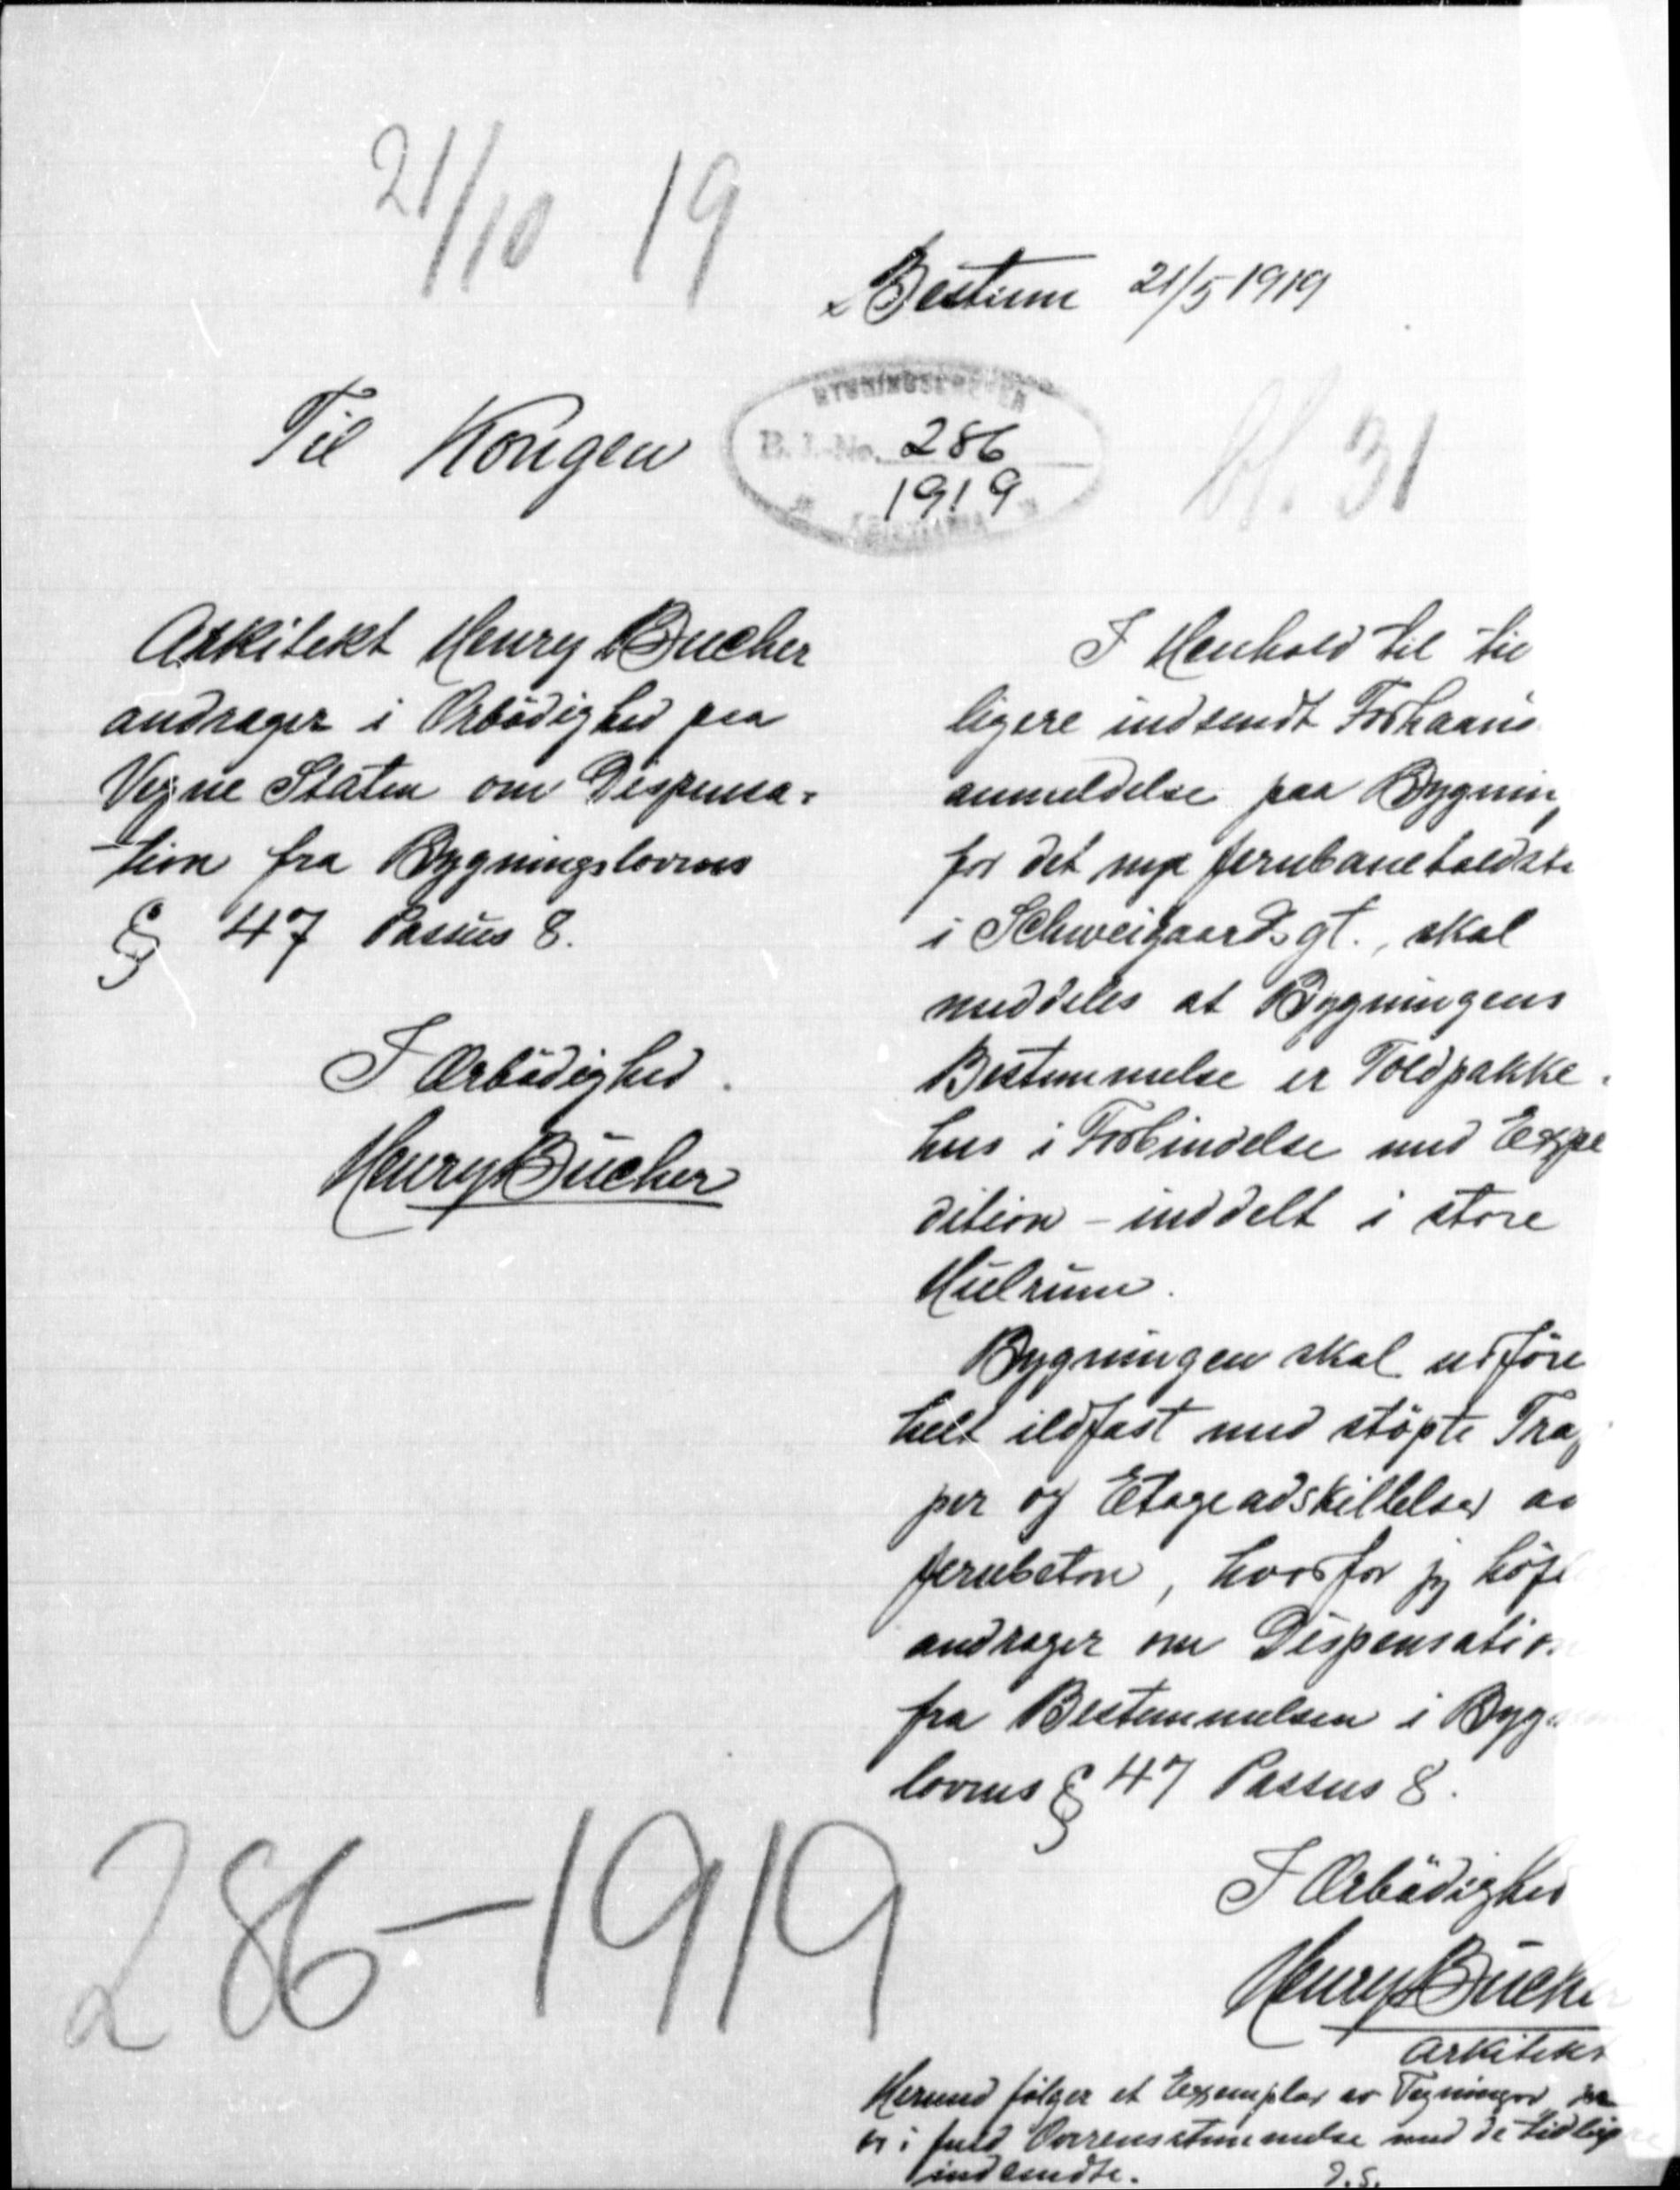 21/10 19
Bestum 21/5 1919
Til Kongen
B. J.-No. 286
1919
bl. 31
Arkitekt Henry Bucher
andrager i Ærbödighed paa
Vegne Staten om Dispensa-
tion fra Bygningslovens
§ 47 Passus 8.
I Ærbödighed.
Henry Bucher
I Henhold til tid
ligere indsendt Forhaands
anmeldelse paa Bygning
for det nye Jernbanetoldste
i Schweigaardsgt., skal
meddeles at Bygningens
Bestemmelse er Toldpakke-
hus i Forbindelse med Expe
dition - inddelt i store
Hulrum.
Bygningen skal udföre
helt ildfast med stöpte Trap
per og Etageadskillelser av
Jernbeton, hvorfor jeg höfl
andrager om Dispensation
fra Bestemmelsen i Bygn
lovens § 47 Passus 8.
I Ærbödighed
Henry Bucher
Arkitekt
Hermed fölger et Exemplar av Tegninger som
er i fuld Overensstemmelse med de tidligere
indsendte.
D.S.
286-1919